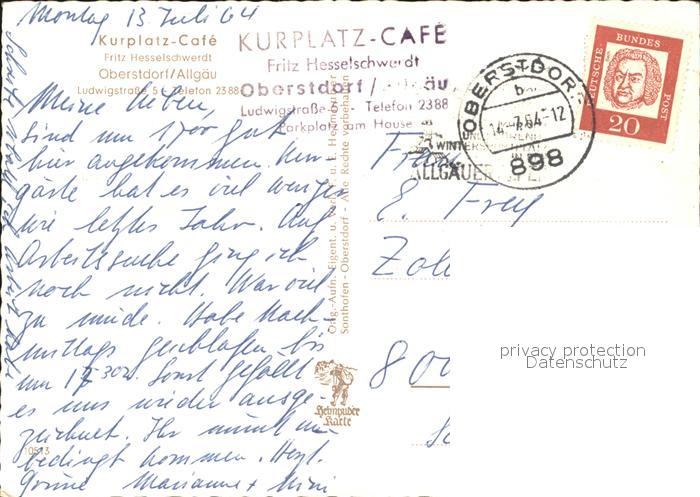 Montag 13. Juli 64
Kurplatz-Café
Fritz Hesselschwerdt
Oberstdorf/Allgäu
Ludwigstraße 5 - Telefon 2388
KURPLATZ-CAFÉ
Fritz Hesselschwerdt
Oberstdorf/Allgäu
Ludwigstraße 5 - Telefon 2388
Parkplatz am Hause
OBERSTDORF
b
14.-7.64-12
898
WINTERSPORTPLATZ
ALLGÄUER
DEUTSCHE BUNDESPOST
20
Meine Lieben,
sind um 1700 gut
hier angekommen. Kur-
gäste hat es viel weniger
wie letztes Jahr. Auf
Arbeitssuche ging ich
noch nicht. War viel
zu müde. Habe Nach-
mittags geschlafen bis
um 17 30 Sonst gefällt
es uns wieder ausge-
zeichnet. Ihr müßt un-
bedingt kommen. Herzl.
Grüsse Marianne + Mini
Orig.-Aufn. Eigent. u. Verlag u. E. Heimhuber
Sonthofen - Oberstdorf - Alle Rechte vorbehalten
Heimhuber
Karte
10513
E. Frey
Zoll
800
privacy protection
Datenschutz